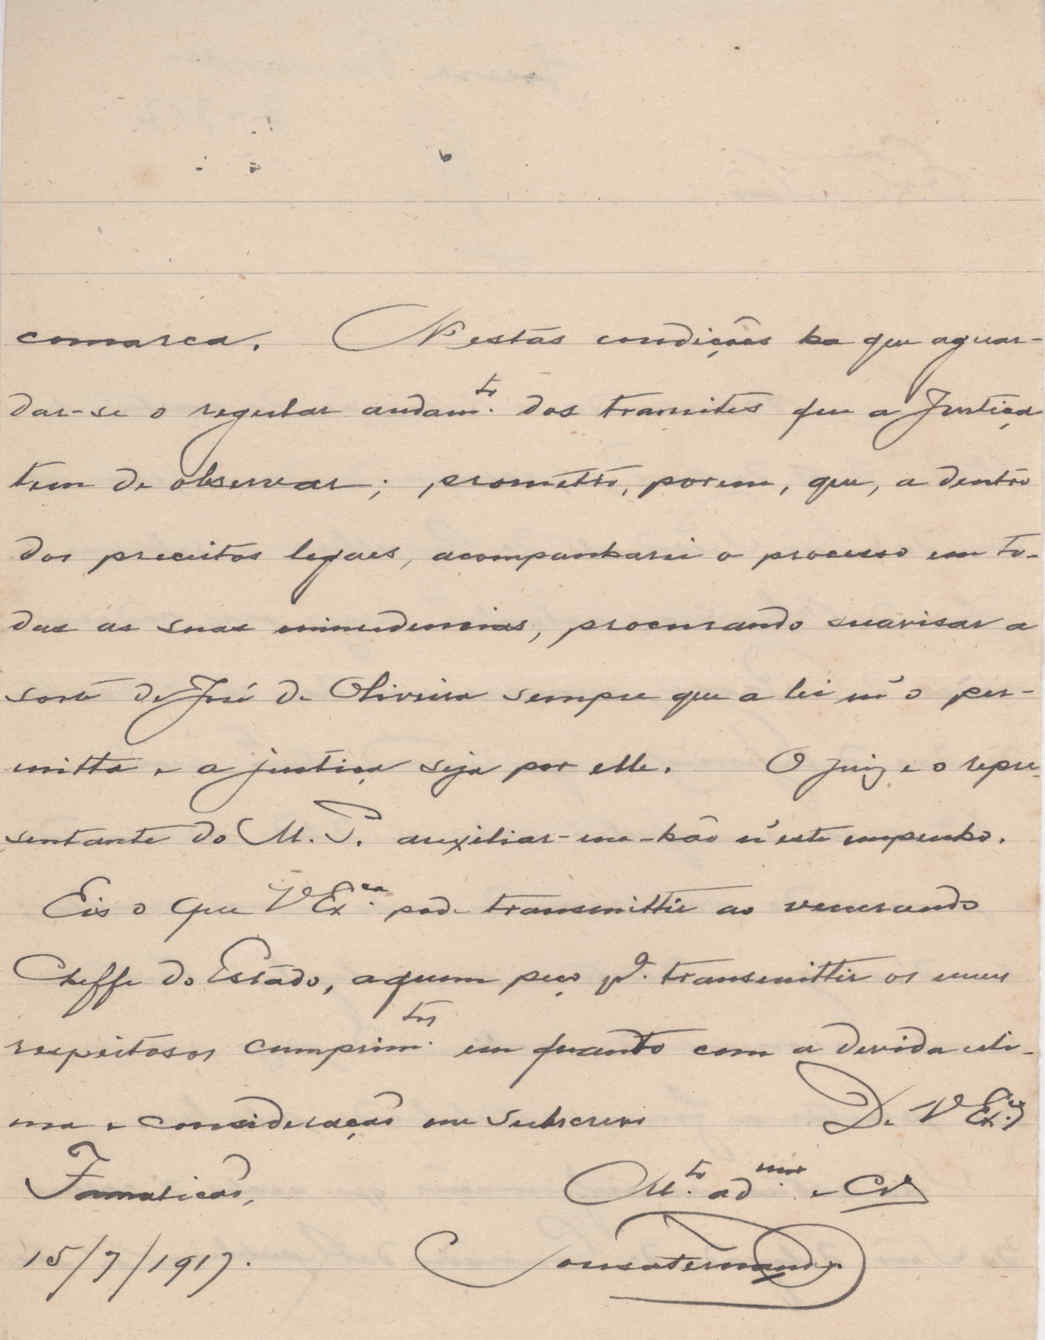 comarca. Nestas condições ha que aguar-
dar-se o regular andam.to dos tramites que a Justiça
tem de observar; prometto, porem, que, a dentro
dos preceitos legaes, acompanharei o processo em to-
das as suas minudencias, procurando suavisar a
sorte de José de Oliveira sempre que a lei m'o per-
mitta e a justiça seja por elle. O juiz e o repre-
sentante do M. P. auxiliar-me-hão n'este empenho.
Eis o que V Ex.cia pode transmittir ao venerando
Cheffe do Estado, a quem peço p.a transmittir os meus
respeitosos cumprim.tos em quanto com a devida esti-
ma e consideração me subscrevo De V Ex.cia
Famalicão, M.to ad.mor e
15/7/1917.